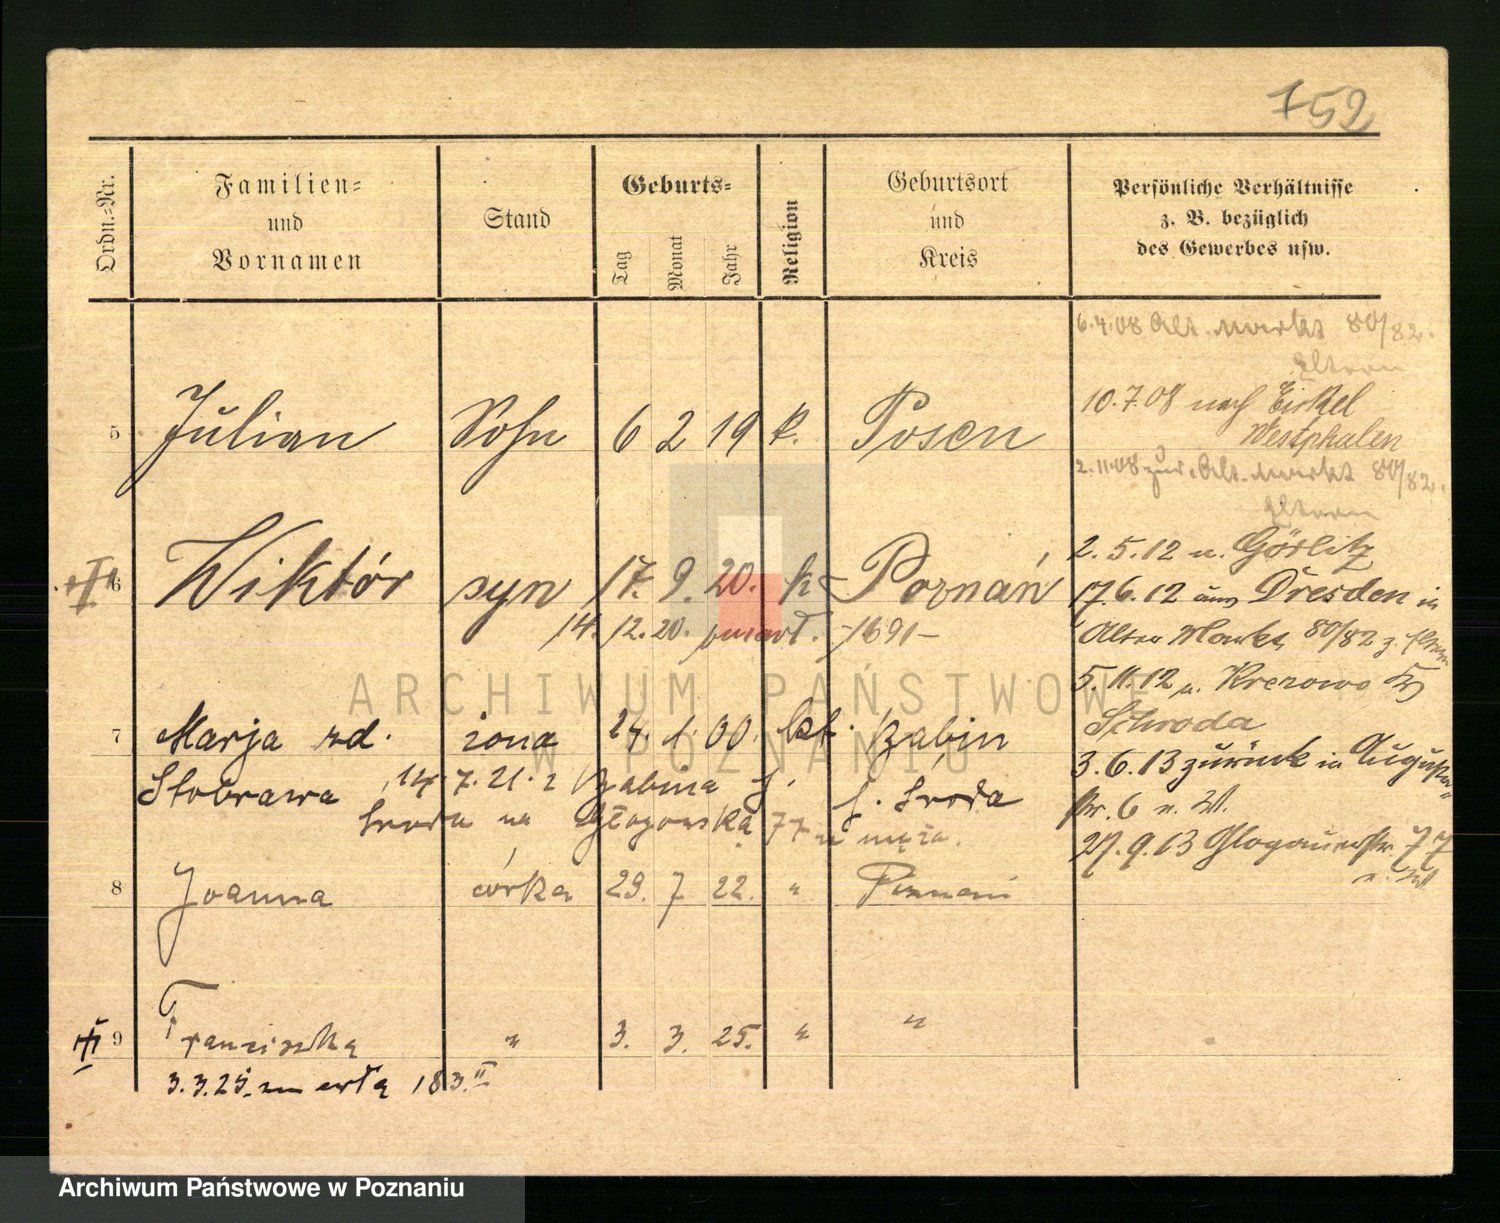 752
Ordn.-Nr.
Familien-
und
Vornamen
Stand
Geburts-
Tag
Monat
Jahr
Religion
Geburtsort
und
Kreis
Persönliche Verhältnisse
z. B. bezüglich
des Gewerbes usw.
6.4.08 Alt. Markt 80/82.
Eltern
10.7.08 nach Eickel
Westphalen
2.11.08 zur. Alt. Markt 80/82.
Eltern
5 Julian Sohn 6 2 19 k. Posen
2.5.12 n. Görlitz
6 Wiktór syn 17. 9. 20. k Poznań
17.6.12 aus Dresden in
14. 12. 20. umarł. -1691-
Alter Markt 80/82 z. Eltern
5.11.12 n. Krerowo Kr
Schroda
7 Marja zd. żona 24. 1. 00. kt. Żabin
Stobrawa 14.7.21. z Żabina
3.6.13 zurück in Augusta-
str. 6 n. W.
j. Środa
Środa na Głogowską 77 u męża.
27.9.13 Glogauerstr. 77
8 Joanna córka 29. 7 22. " Poznań
9 Franciszka " 3. 3. 25. " "
3.3.25. umarła 183 II
ARCHIWUM PAŃSTWOWE
W POZNANIU
Archiwum Państwowe w Poznaniu